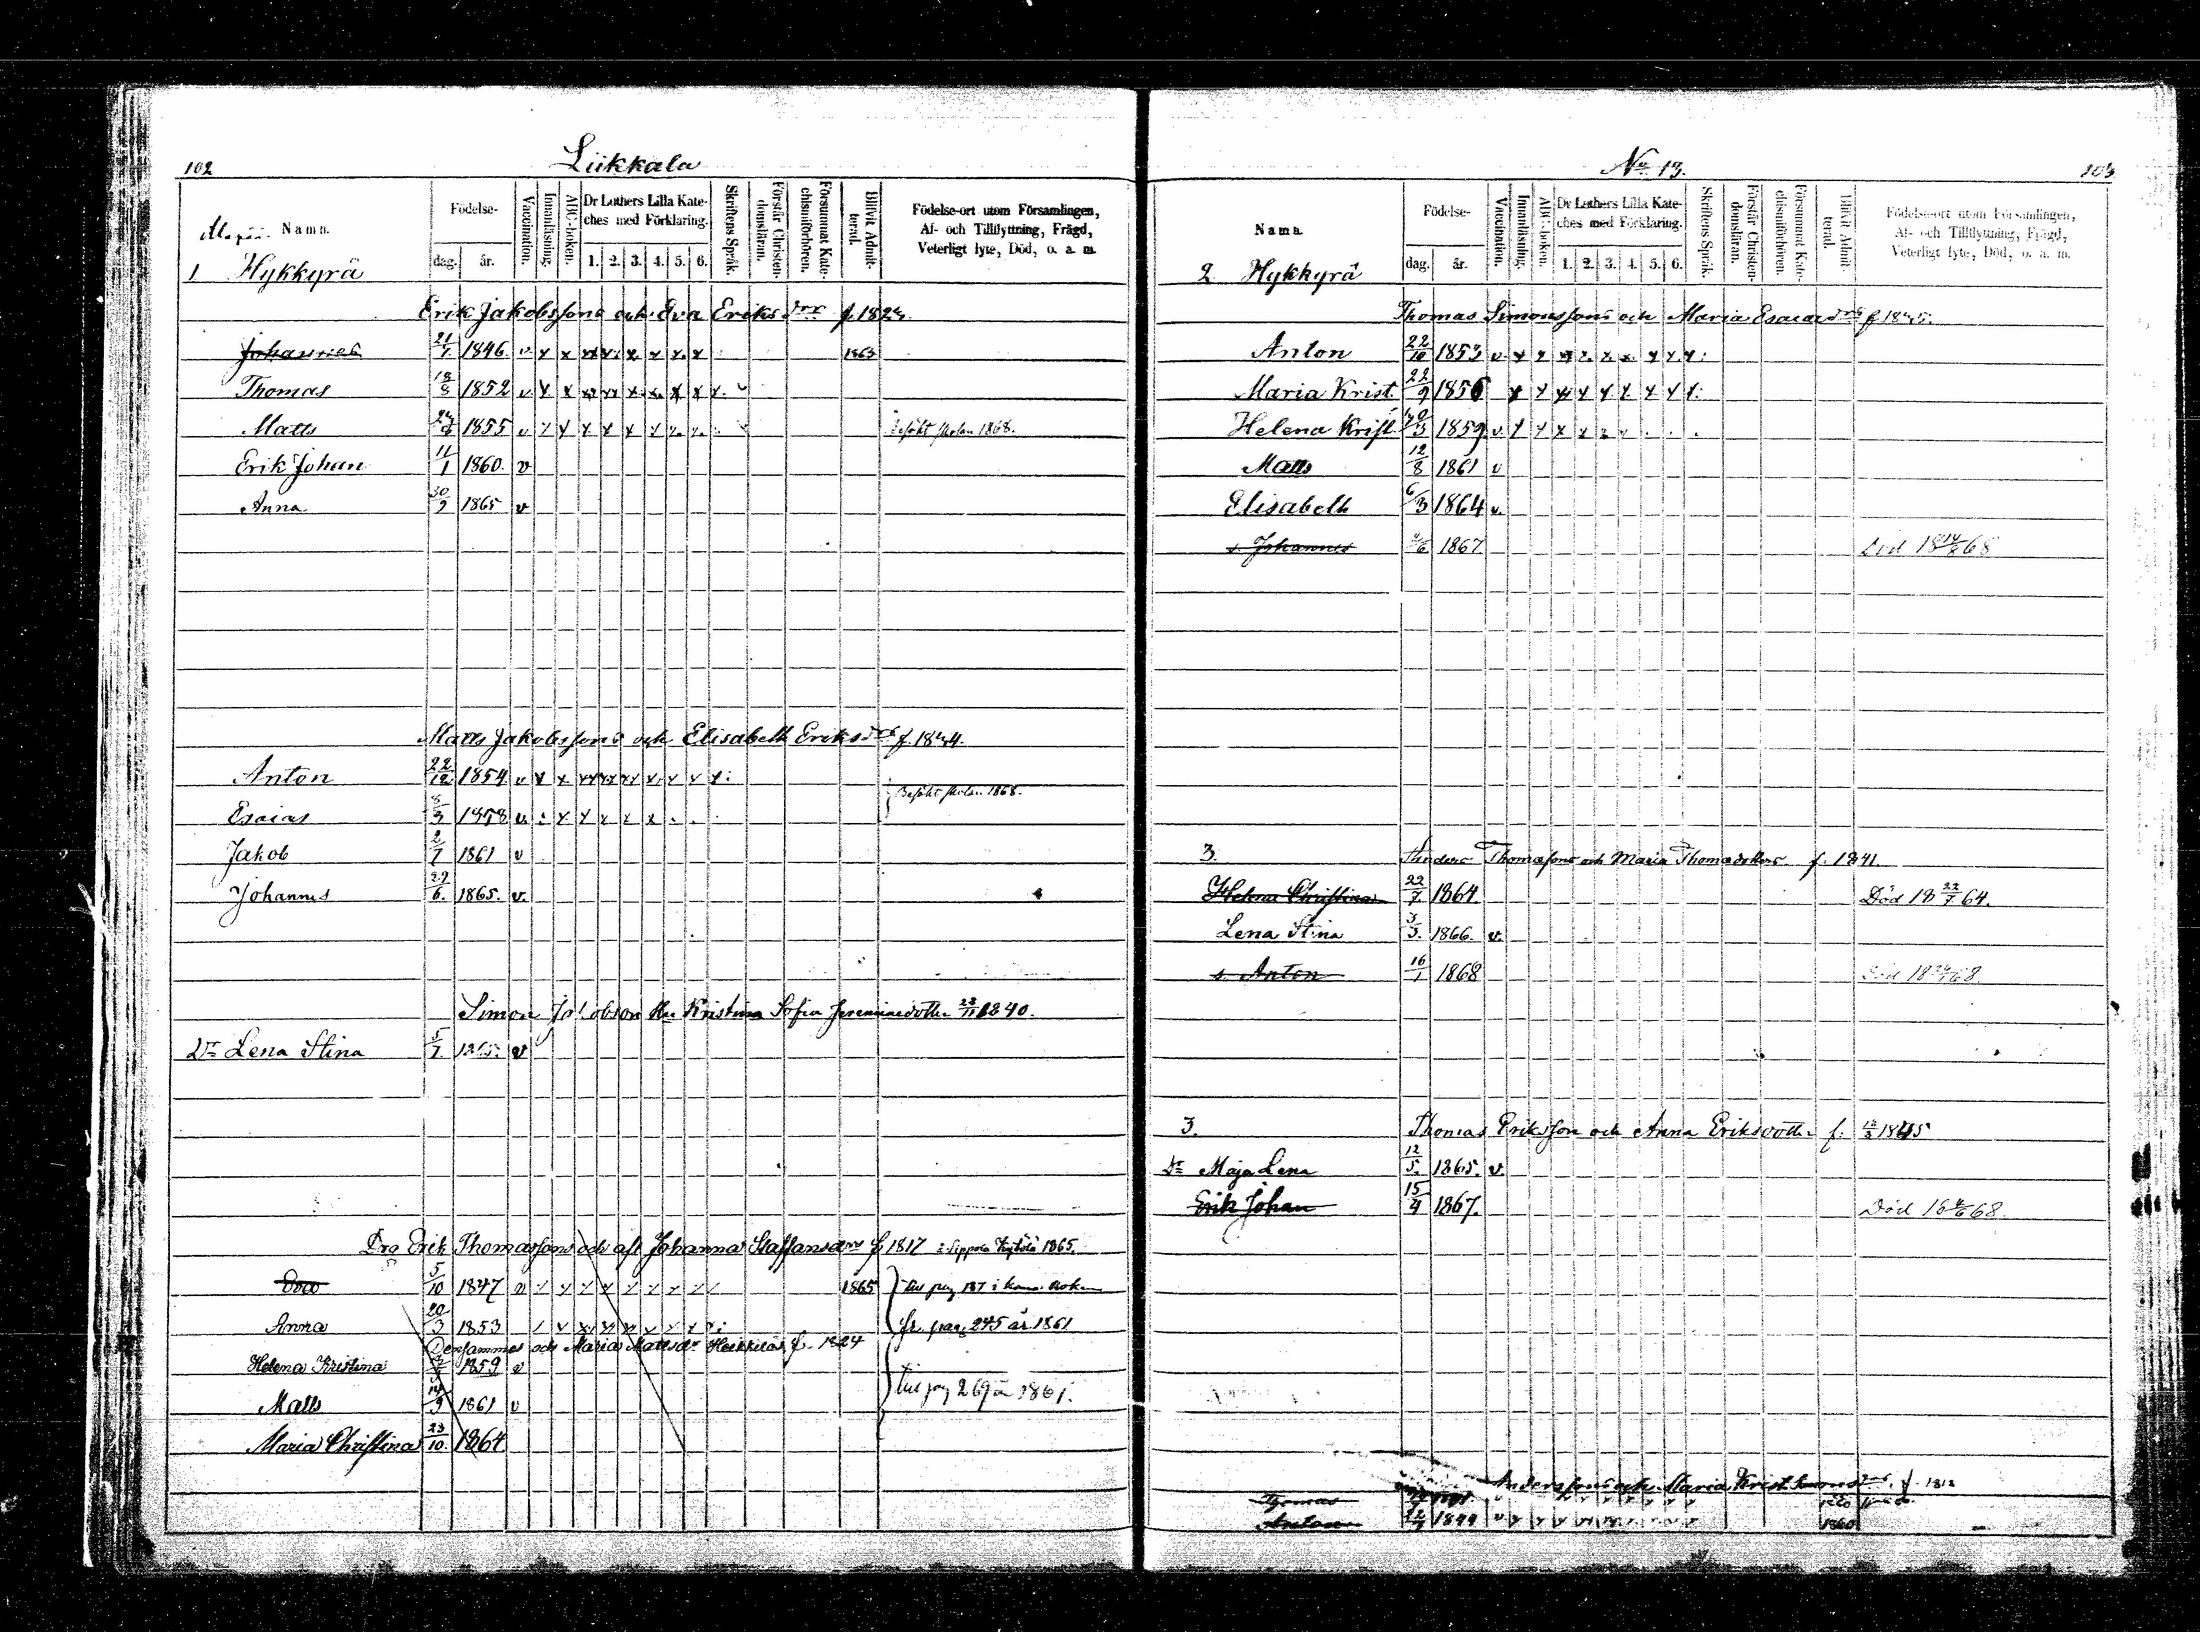 102
Liikkala
Namn.
Födelse-
dag.
år.
Vaccination.
Innanläsning.
ABC-boken.
Dr Luthers Lilla Kate-
ches med Förklaring.
1. 2. 3. 4. 5. 6.
Skriftens Språk.
Förstår Christen-
domsläran.
Försummat Kate-
chismiförhören.
Blifvit Admit-
terad.
Födelse-ort utom Församlingen,
Af- och Tillflyttning, Frägd,
Veterligt lyte, Död, o. a. m.
1 Hykkyrä
Erik Jakobssons och Eva Eriksdrs f. 1824
Johannes 21/7 1846. v x x x x x x x x 1863
Thomas 18/8 1852 v x x x x x x x x x
Matts 1855 v x x x x x x Besökt skolan 1868.
Erik Johan 11/1 1860. v
Anna 30/9 1865 v
Matts Jakobssons och Elisabeth Eriksdrs f.
Anton 22/12 1854 v x x x x x x x x x
Besökt skolan 1868.
Esaias 8/3 1858 v x x x x x
Jakob 2/7 1861 v
Johannes 29/6. 1865. v.
Simon Jakobson Hu Kristina Sofia 1840.
Dr Lena Stina 5/7. 1865. v
Drg Erik Thomassons och aft Johanna Staffansdrs f 1817 i Sippola 1865.
5/10 1847 1865 till pag 187 i
Anna 20/3 1853 fr. pag 245 år 1861
Densammes och Maria Mattsdr Heikkilas f. 1824
Helena Kristina 1859 v
Matts 1861 v till pag 269 år 1861.
Maria Christina 23/10. 1864
No 13.
103
Namn.
Födelse-
dag.
år.
Vaccination.
Innanläsning.
ABC-boken.
Dr Luthers Lilla Kate-
ches med Förklaring.
1. 2. 3. 4. 5. 6.
Skriftens Språk.
Förstår Christen-
domsläran.
Försummat Kate-
chismiförhören.
Blifvit Admit-
terad.
Födelse-ort utom Församlingen,
Af- och Tillflyttning, Frägd,
Veterligt lyte, Död, o. a. m.
2 Hykkyrä
Thomas Simonssons och Maria Esaiaedrs f
Anton 22/10 1853 v x x x x x x x x x
Maria Krist. 22/9 1856 x x x x x x x x x
Helena Krist. 1859. v x x x x
Matts 12/8 1861 v
Elisabeth 6/3 1864 v.
s. Johannes 1867 Död 18 14/8 68
3. Anders Thomasons och Maria Thomasdotters f. 1841.
Helena Christina 22/7. 1864 Död 18 22/7 64.
Lena Stina 3/3. 1866. v.
s. Anton 16/1 1868 Död 68.
3. Thomas Eriksson och Anna Eriksdotter f. 1845
Dr Maja Lena 12/5. 1865. v.
Erik Johan 15/4 1867. Död 68.
Anderssons och Maria Krist. f. 1812
Thomas
Anton 1844 1860